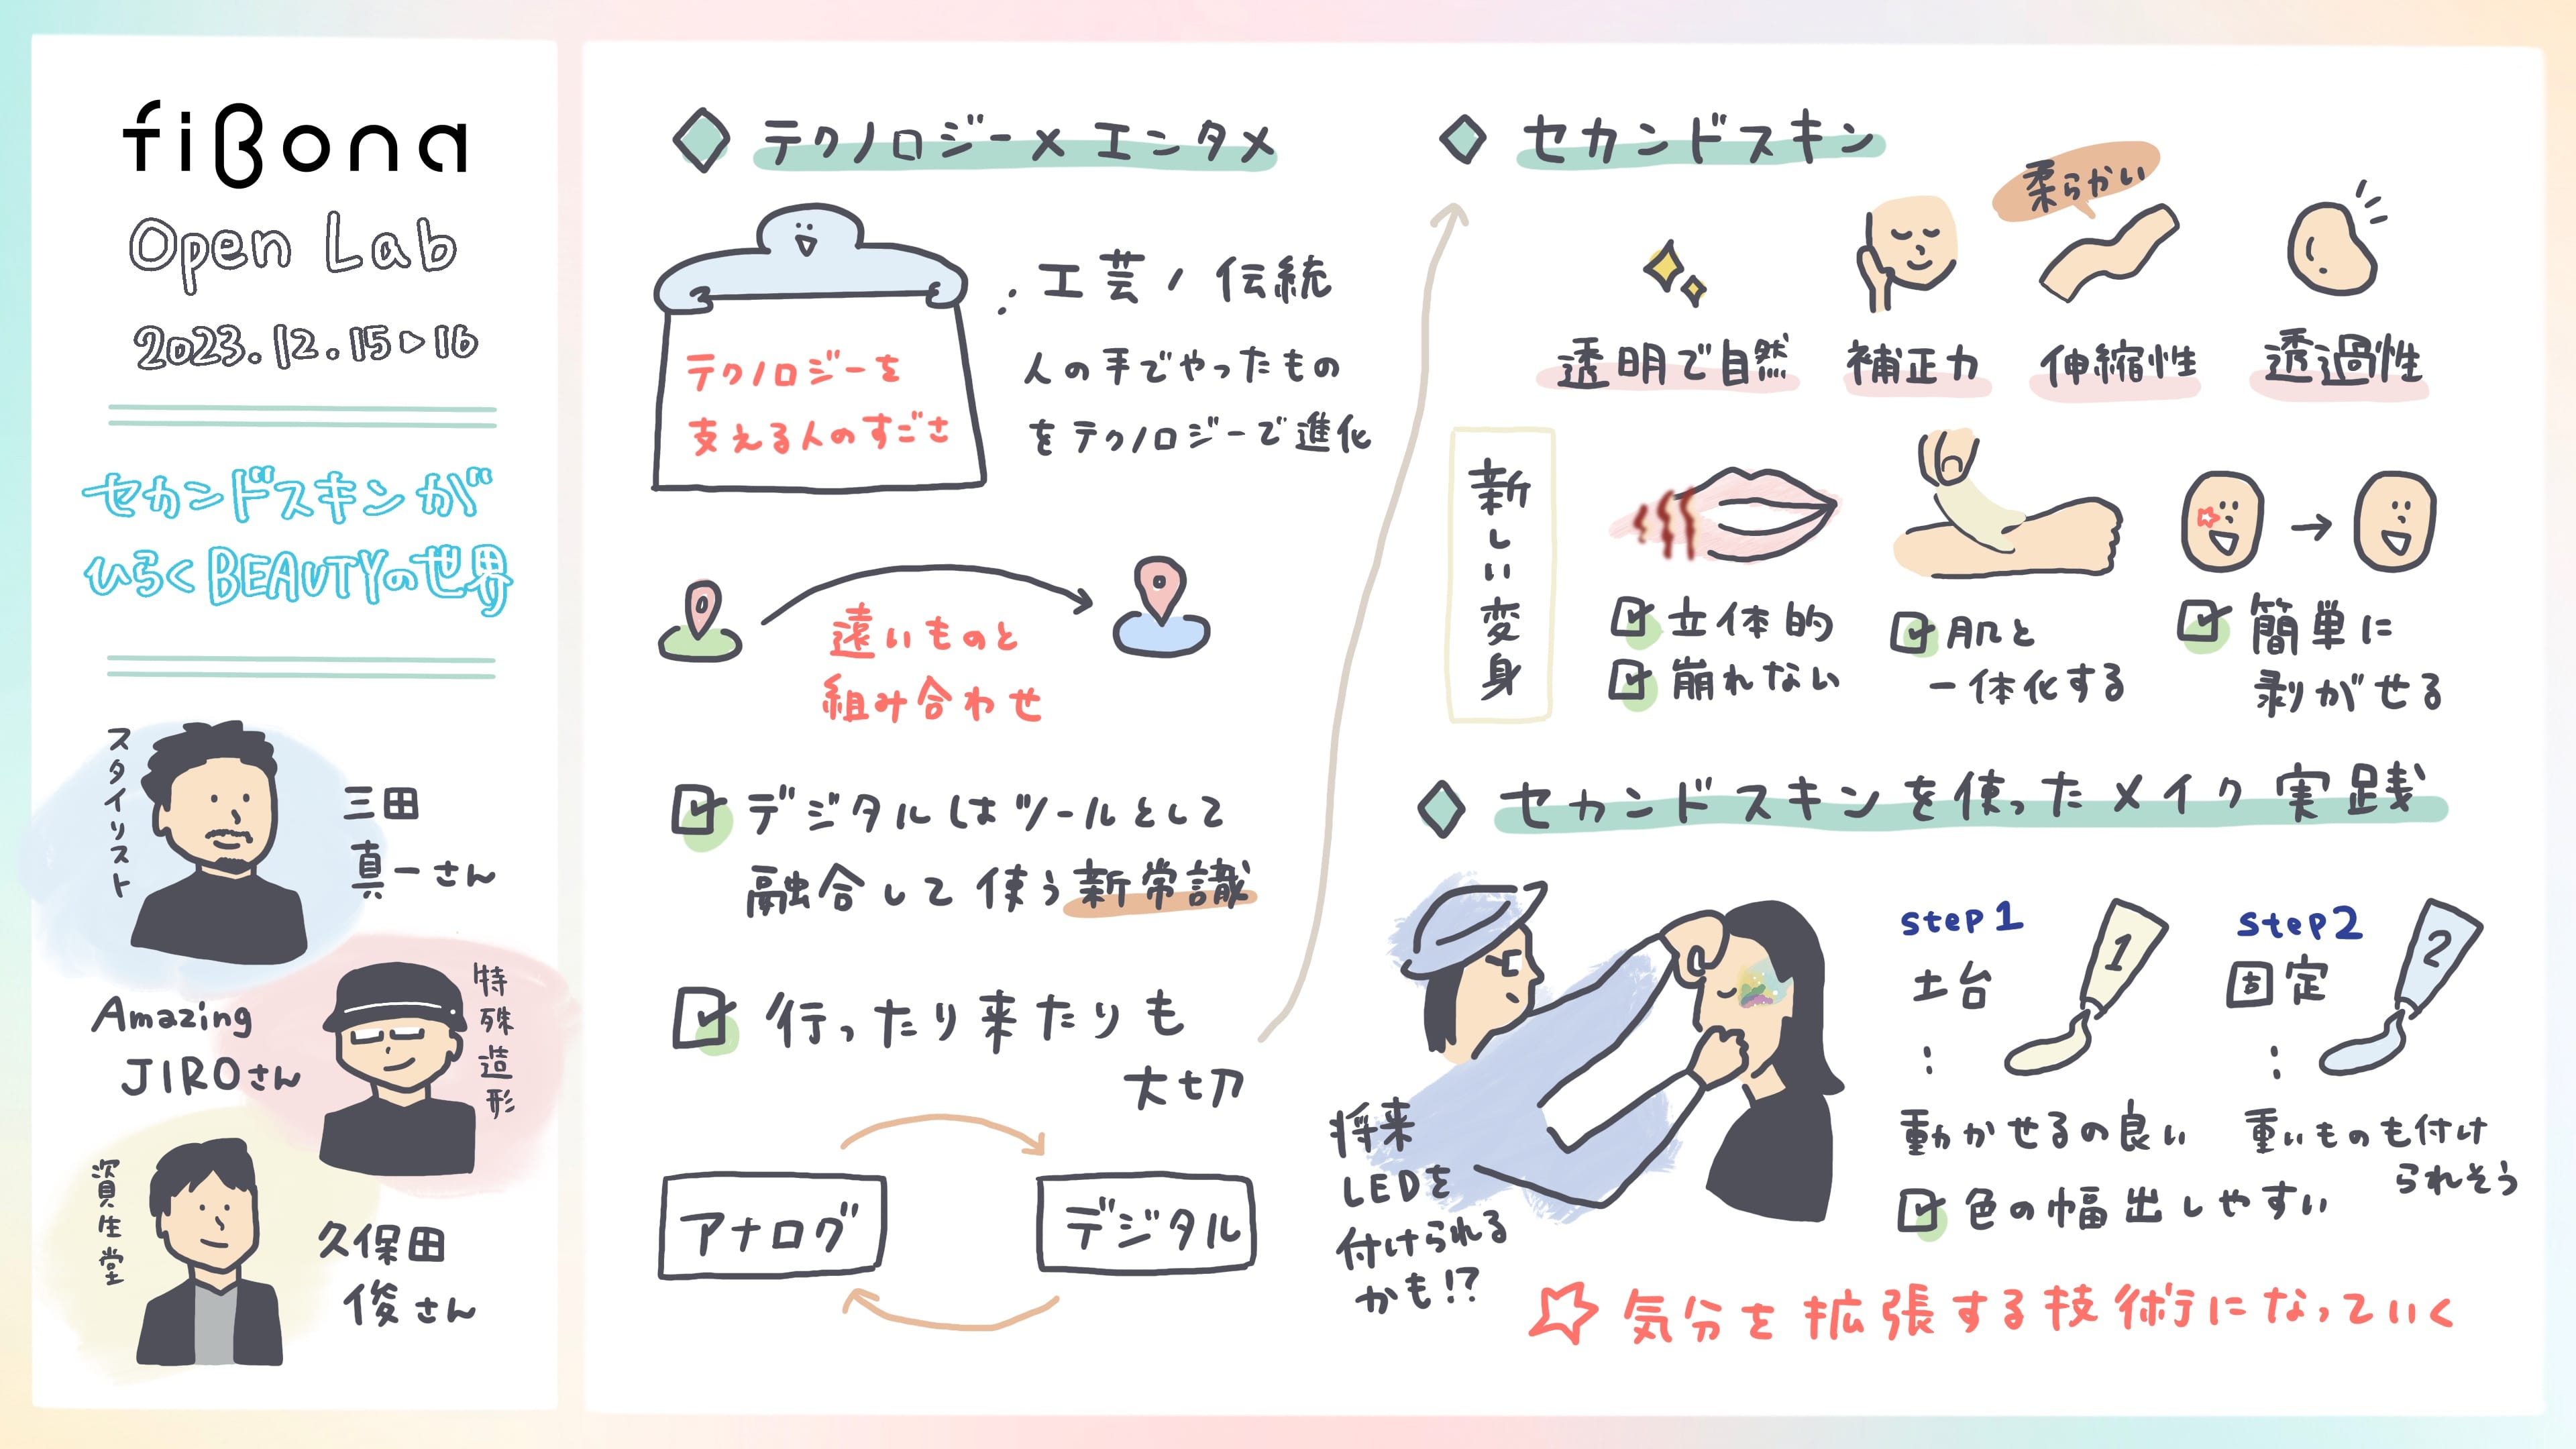 fiBona
Open Lab
2023.12.15▷16
セカンドスキンが
ひらくBEAUTYの世界
スタイリスト
三田
真一さん
Amazing
JIROさん
特殊造形
資生堂
久保田
俊さん
テクノロジー×エンタメ
テクノロジーを
支える人のすごさ
工芸/伝統
人の手でやったもの
をテクノロジーで進化
遠いものと
組み合わせ
デジタルはツールとして
融合して使う新常識
行ったり来たりも
大切
アナログ
デジタル
セカンドスキン
柔らかい
透明で自然
補正力
伸縮性
透過性
新しい変身
立体的
崩れない
肌と
一体化する
簡単に
剥がせる
セカンドスキンを使ったメイク実践
将来
LEDを
付けられる
かも!?
step1
土台
1
動かせるの良い
色の幅出しやすい
step2
固定
2
重いものも付け
られそう
☆気分を拡張する技術になっていく